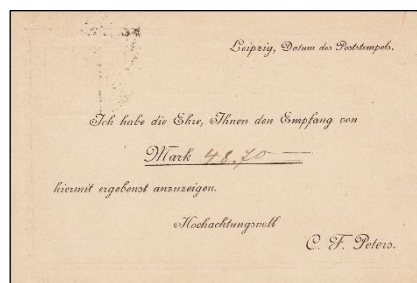 Leipzig, Datum des Poststempels.
Ich habe die Ehre, Ihnen den Empfang von
Mark 48.70
hiermit ergebenst anzuzeigen.
Hochachtungsvoll
C. F. Peters.